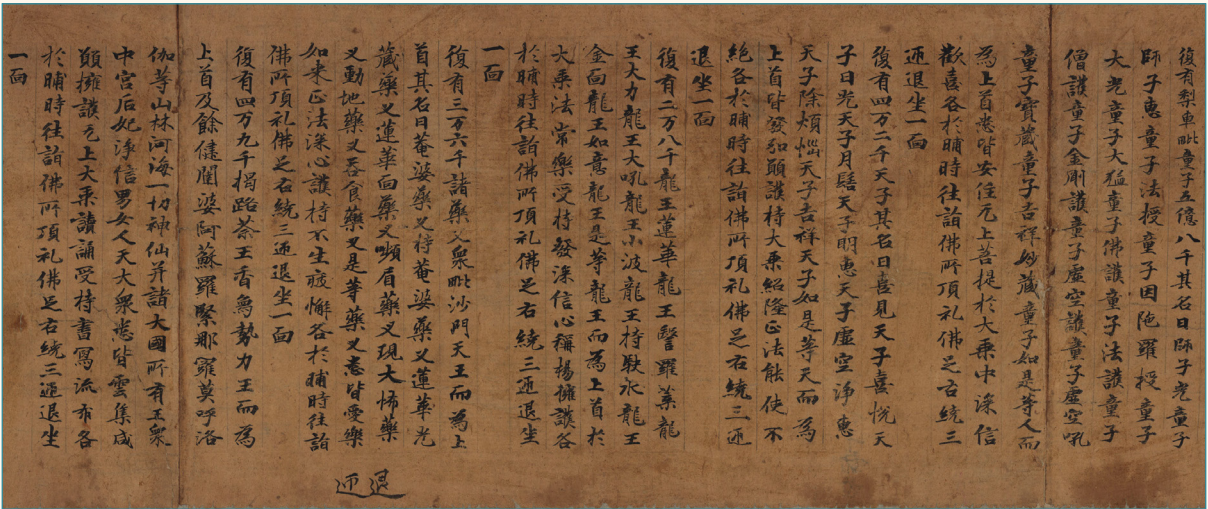 復有梨車毗童子五億八千其名曰師子光童子
師子惠童子法授童子因陁羅授童子
大光童子大猛童子佛護童子法護童子
僧護童子金剛護童子虛空護童子虛空吼
童子寶藏童子吉祥妙藏童子如是等人而
為上首悉皆安住无上菩提於大乘中深信
歡喜各於晡時往詣佛所頂礼佛足右繞三
迊退坐一面
復有四万二千天子其名曰喜見天子喜悅天
子日光天子月髻天子明惠天子虛空淨惠
天子除煩惱天子吉祥天子如是等天而為
上首皆發弘願護持大乘紹隆正法能使不
絕各於晡時往詣佛所頂礼佛足右繞三迊
退坐一面
復有二万八千龍王蓮華龍王翳羅葉龍
王大力龍王大吼龍王小波龍王持駛水龍王
金面龍王如意龍王是等龍王而為上首於
大乘法常樂受持發深信心稱揚擁護各
於晡時往詣佛所頂礼佛足右繞三迊退坐
一面
復有三万六千諸藥叉衆毗沙門天王而為上
首其名曰菴婆藥叉持菴婆藥叉蓮華光
藏藥叉蓮華面藥叉嚬眉藥叉現大怖藥
叉動地藥叉吞食藥叉是等藥叉悉皆愛樂
如来正法深心護持不生疲懈各於晡時往詣
佛所頂礼佛足右繞三迊退坐一面
復有四万九千揭路荼王香鳥勢力王而為
上首及餘健闥婆阿蘇羅緊那羅莫呼洛
伽等山林河海一切神仙并諸大國所有王衆
中宮后妃淨信男女人天大衆悉皆雲集咸
願擁護无上大乘讀誦受持書寫流布各
於晡時往詣佛所頂礼佛足右繞三迊退坐
一面
退
迊